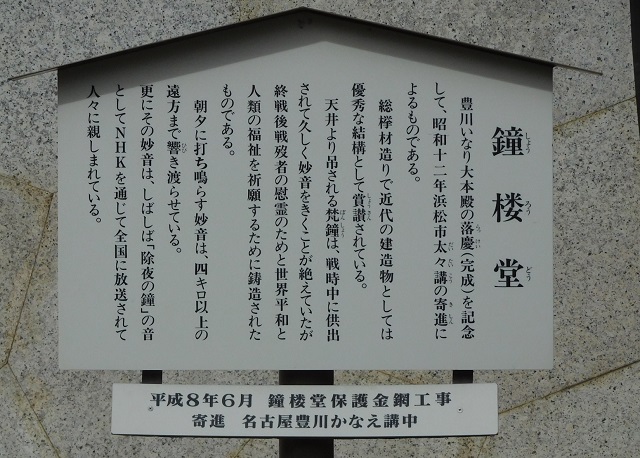 鐘楼堂
しょうろうどう
豊川いなり大本殿の落慶(完成)を記念
らっけい
して、昭和十二年浜松市太々講の寄進に
だいだいこう きしん
よるものである。
総欅材造りで近代の建造物としては
優秀な結構として賞讃されている。
しょうさん
天井より吊される梵鐘は、戦時中に供出
ぼんしょう
されて久しく妙音をきくことが絶えていたが
終戦後戦歿者の慰霊のためと世界平和と
人類の福祉を祈願するために鋳造された
ものである。
朝夕に打ち鳴らす妙音は、四キロ以上の
遠方まで響き渡らせている。
ひび
更にその妙音は、しばしば「除夜の鐘」の音
としてNHKを通じて全国に放送されて
人々に親しまれている。
平成8年6月 鐘楼堂保護金網工事
寄進 名古屋豊川かなえ講中